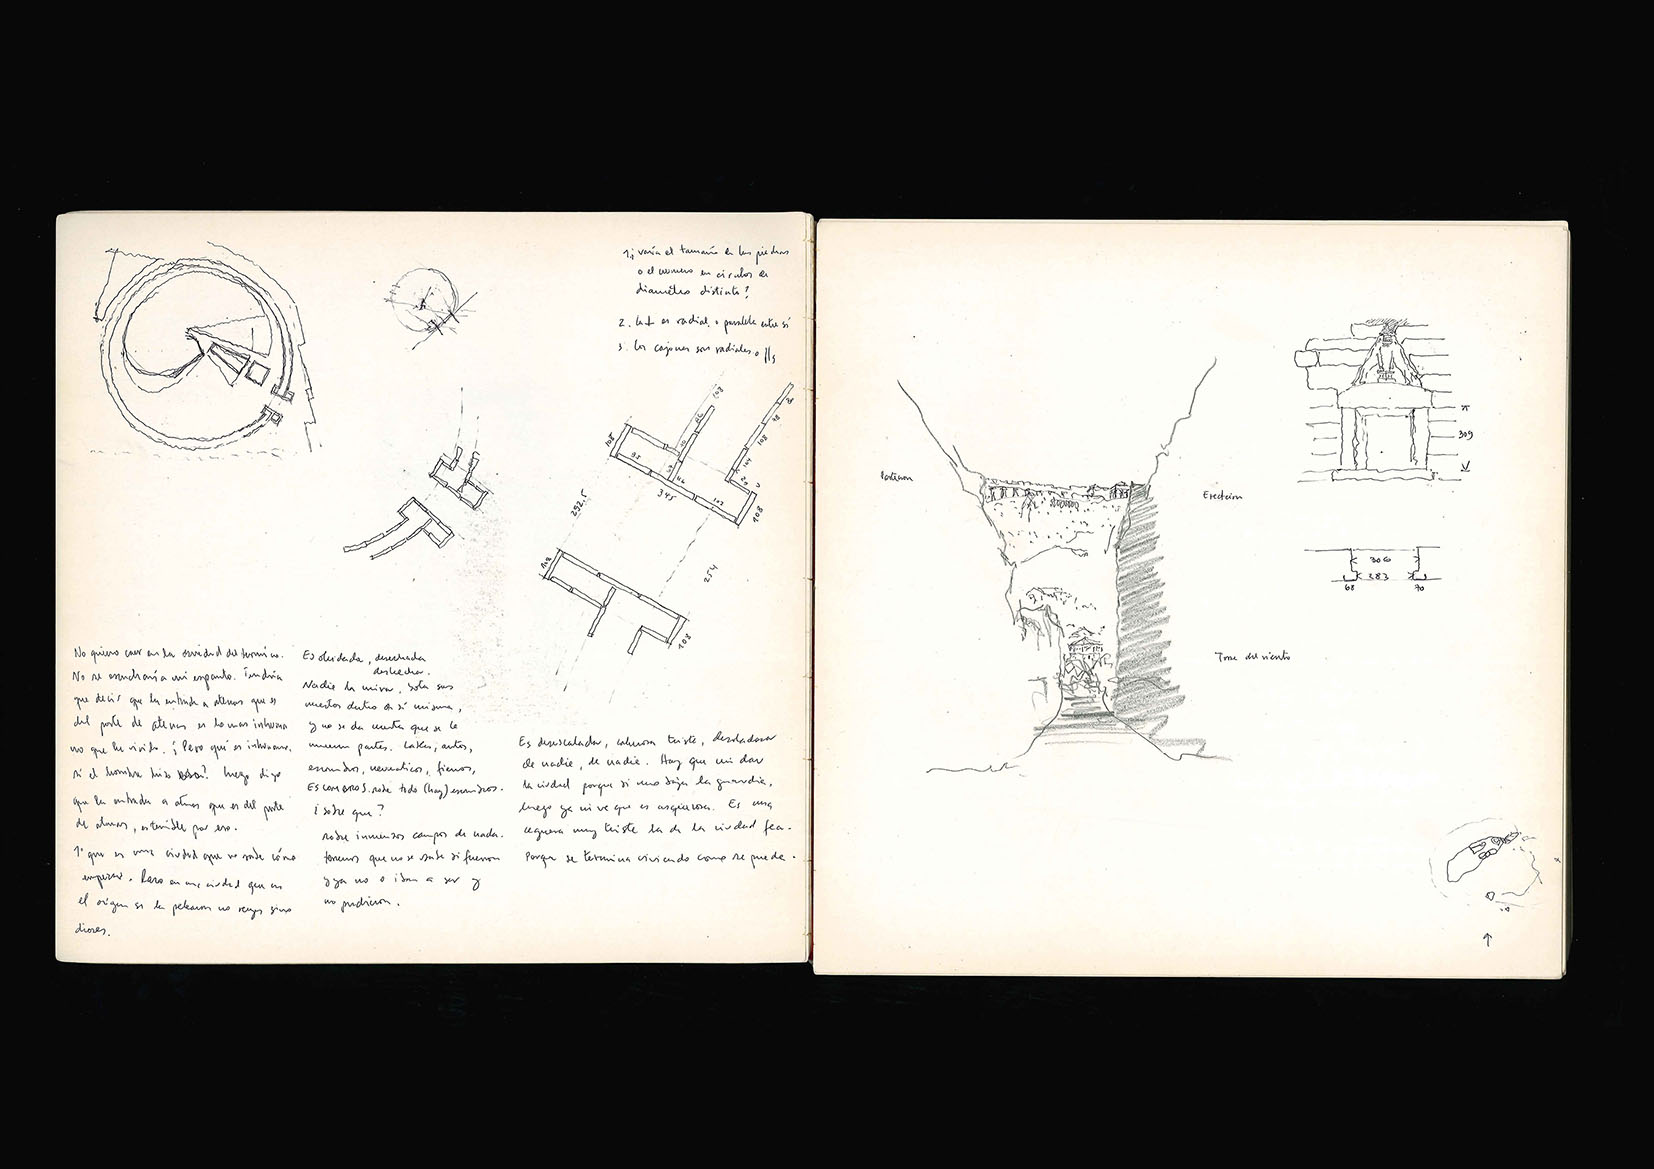 1. ¿ varía el tamaño de las piedras
o el número en círculos de
diámetro distinto?
2. La ⊥ es radial o paralela entre sí
3. Los cajones son radiales o //s
108
95
345
103
108
98
103
108
292.5
254
108
108
No quiero caer en la
No se escucharía mi espanto. Tendría
que decir que la entrada a atenas que es
del porte de atenas es lo más inhuma
no que he visto. ¿ Pero qué es inhumano,
si el hombre hizo ? Luego digo
que la entrada a atenas que es del porte
de atenas, es terrible por eso.
1º que es una ciudad que no sabe cómo
empezar. Raro en una ciudad que en
el origen se la pelearon no reyes sino
dioses.
Es olvidada, desechada
deshecha.
Nadie la mira,
muertos dentro de sí misma,
y no se da cuenta que se le
mueren partes. Latas, autos,
escombros, neumáticos, fierros,
ESCOMBROS. sobre todo (hay) escombros.
¿ sobre que?
sobre inmensos campos de nada.
terrenos que no se sabe si fueron
y ya no o iban a ser y
no pudieron.
Es desescalador, calurosa triste,
de nadie, de nadie. Hay que cuidar
la ciudad porque si uno baja la guardia,
luego ya ni ve que es asquerosa. Es una
ceguera muy triste la de la ciudad fea.
Porque se termina viviendo como se puede.
Partenon
Erecteion
Torre del viento
309
306
283
68
70